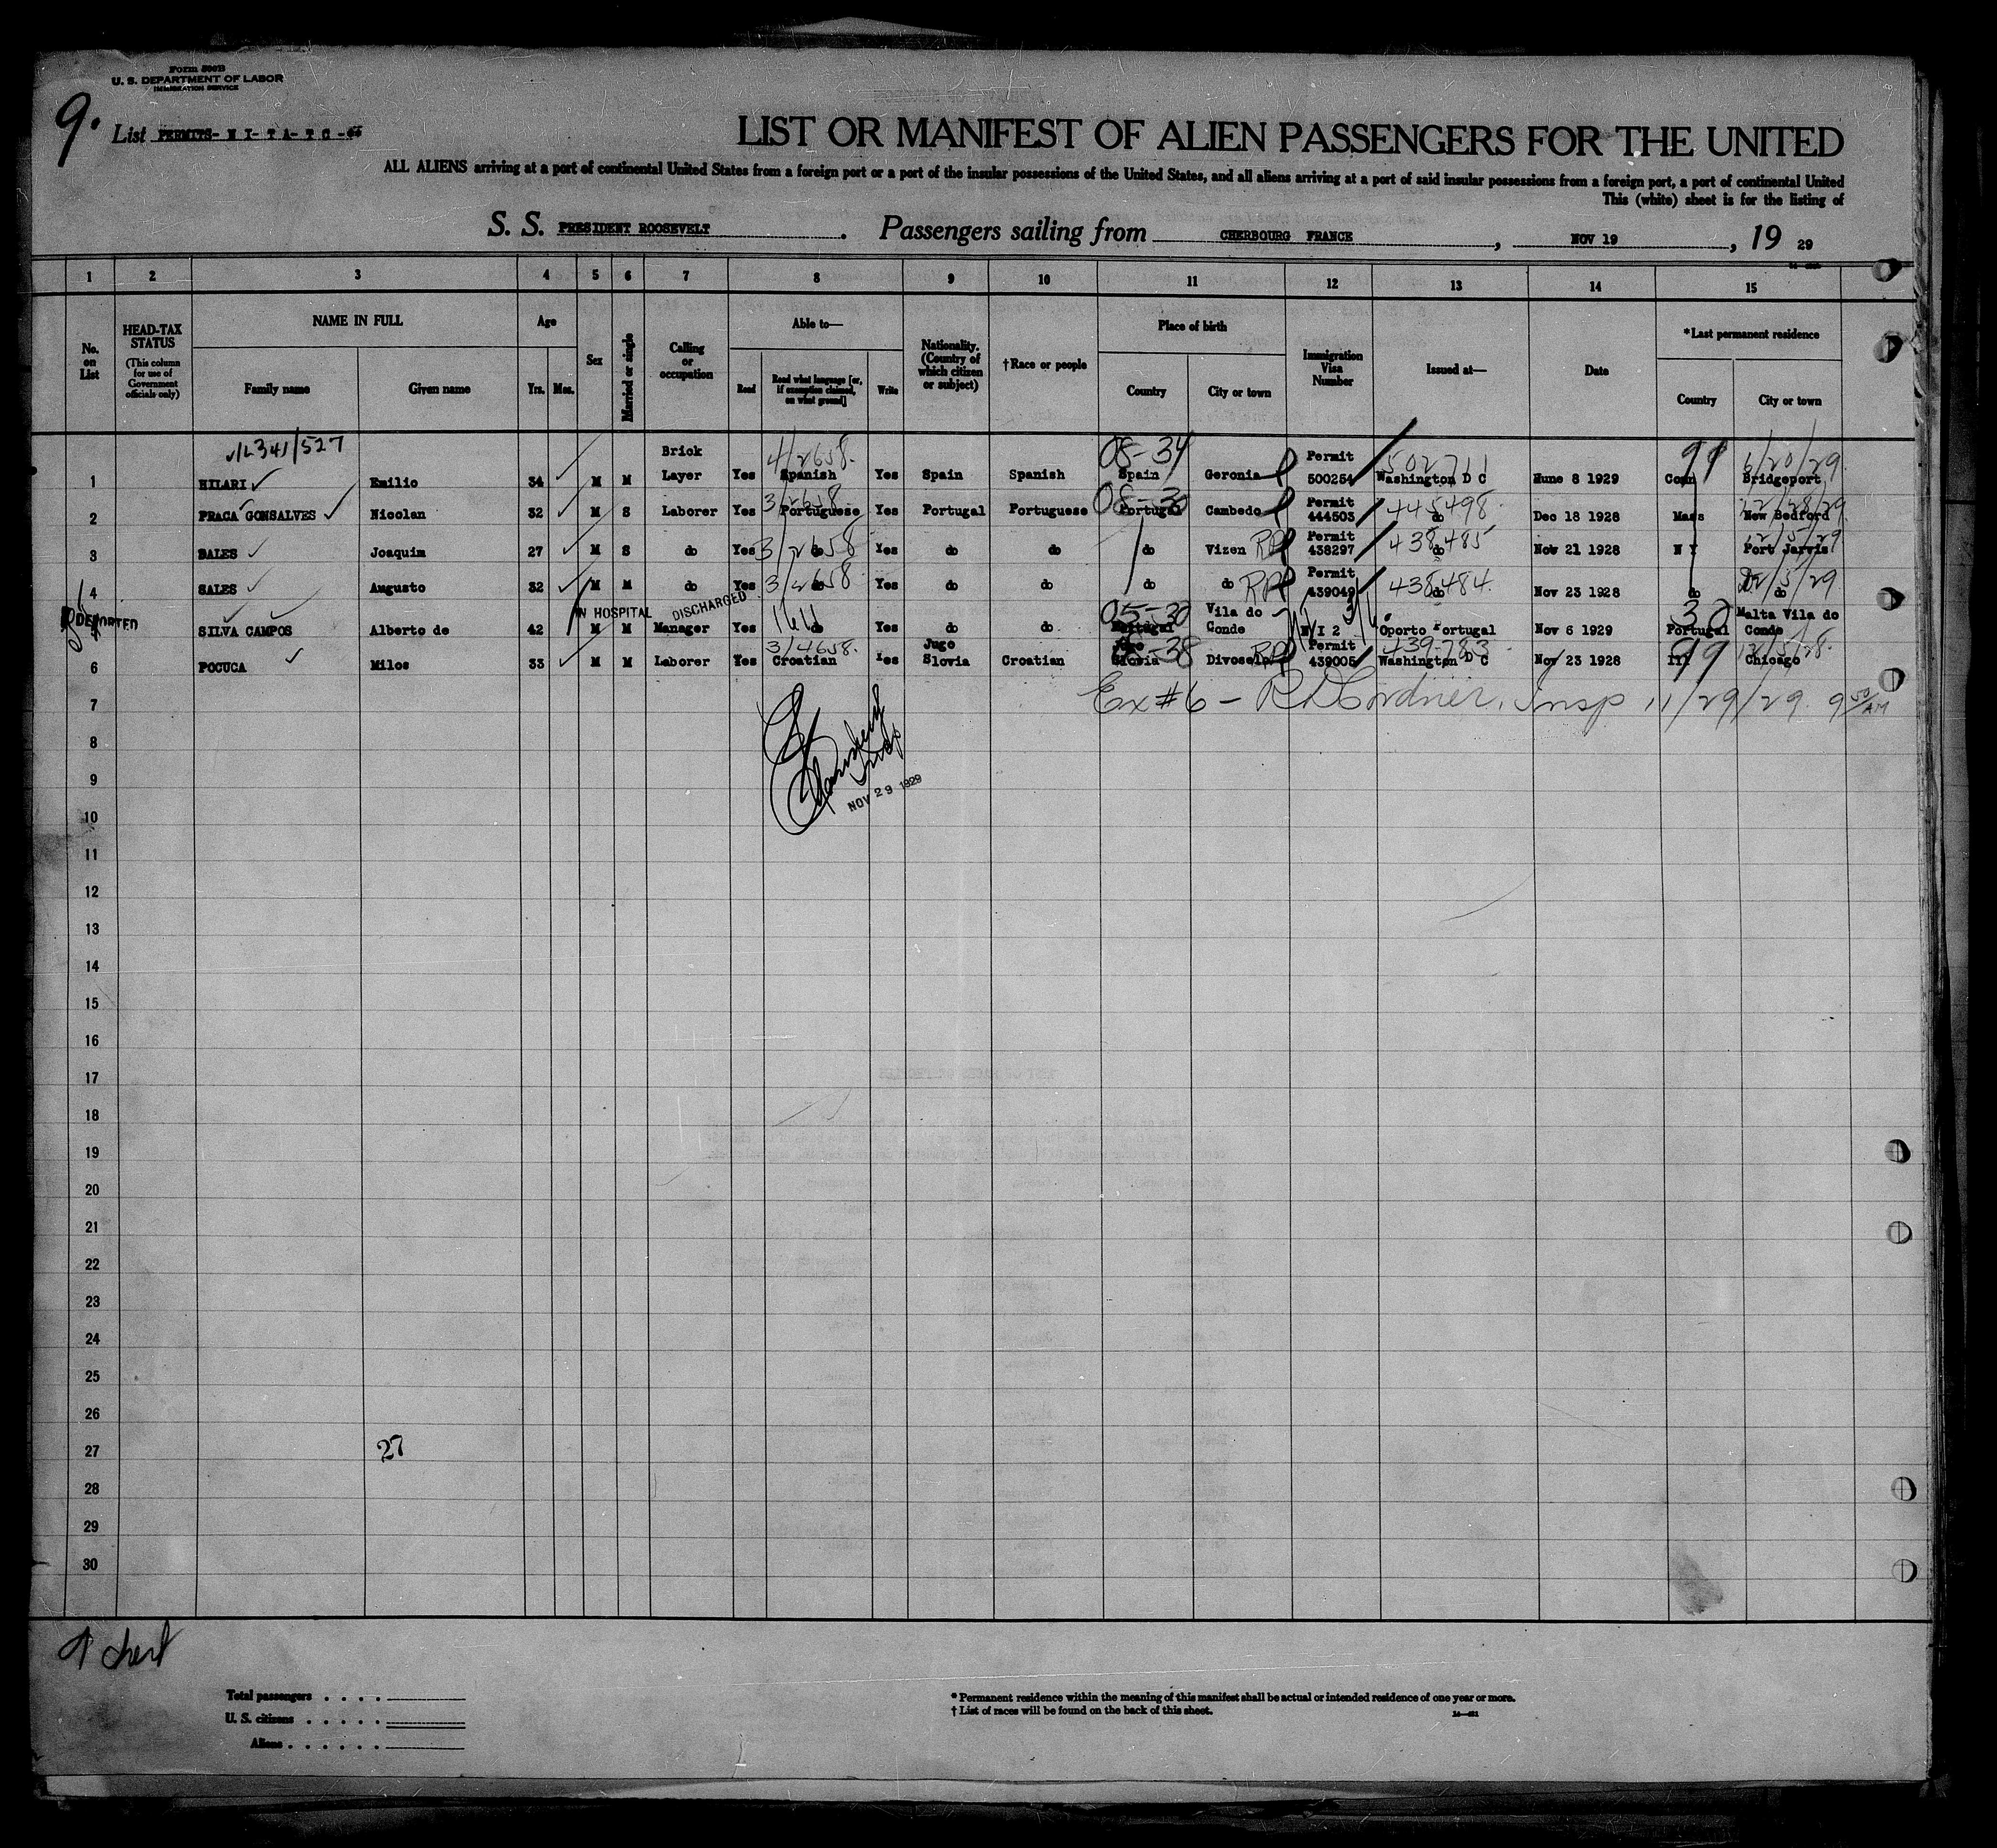 Form 500B
U. S. DEPARTMENT OF LABOR
IMMIGRATION SERVICE
9.
List PERMITS- N I- T A- T C -
LIST OR MANIFEST OF ALIEN PASSENGERS FOR THE UNITED
ALL ALIENS arriving at a port of continental United States from a foreign port or a port of the insular possessions of the United States, and all aliens arriving at a port of said insular possessions from a foreign port, a port of continental United
This (white) sheet is for the listing of
S. S. PRESIDENT ROOSEVELT . Passengers sailing from CHERBOURG FRANCE , NOV 19 , 19 29
1 2 3 4 5 6 7 8 9 10 11 12 13 14 15
No. on List
HEAD-TAX STATUS (This column for use of Government officials only)
NAME IN FULL
Family name Given name
Age
Yrs. Mos.
Sex
Married or single
Calling or occupation
Able to—
Read Read what language [or, if exemption claimed, on what ground] Write
Nationality. (Country of which citizen or subject)
†Race or people
Place of birth
Country City or town
Immigration Visa Number
Issued at—
Date
*Last permanent residence
Country City or town
4/2658. 08-34 502711 99 6/20/29.
1 HILARI Emilio 34 M M Brick Layer Yes Spanish Yes Spain Spanish Spain Geronia Permit 500254 Washington D C June 8 1929 Conn Bridgeport
3/2658 08-30 445498.
2 PRACA GONSALVES Nicolan 32 M S Laborer Yes Portuguese Yes Portugal Portuguese Portugal Cambedo Permit 444503 do Dec 18 1928 Mass New Bedford
3/2658 438485 12/5/29
3 SALES Joaquim 27 M S do Yes do Yes do do do Vizen Permit 438297 do Nov 21 1928 N Y Port Jarvis
3/2658 438484.
4 SALES Augusto 32 M M do Yes do Yes do do do do Permit 439049 do Nov 23 1928 do do
DEPORTED IN HOSPITAL DISCHARGED 05-30 30
5 SILVA CAMPOS Alberto de 42 M M Manager Yes do Yes do do Portugal Vila do Conde N I 2 Oporto Portugal Nov 6 1929 Portugal Malta Vila do Conde
3/4658. 439783 99
6 POCUCA Milos 33 M M Laborer Yes Croatian Yes Jugo Slovia Croatian Jugo Slovia Permit 439005 Washington D C Nov 23 1928 Ill Chicago
7 Ex #6 - Insp 11/29/29. 9 50 AM
8
9
NOV 29 1929
10
11
12
13
14
15
16
17
18
19
20
21
22
23
24
25
26
27 27
28
29
30
Total passengers . . . .
U. S. citizens . . . . .
Aliens . . . . . .
* Permanent residence within the meaning of this manifest shall be actual or intended residence of one year or more.
† List of races will be found on the back of this sheet.